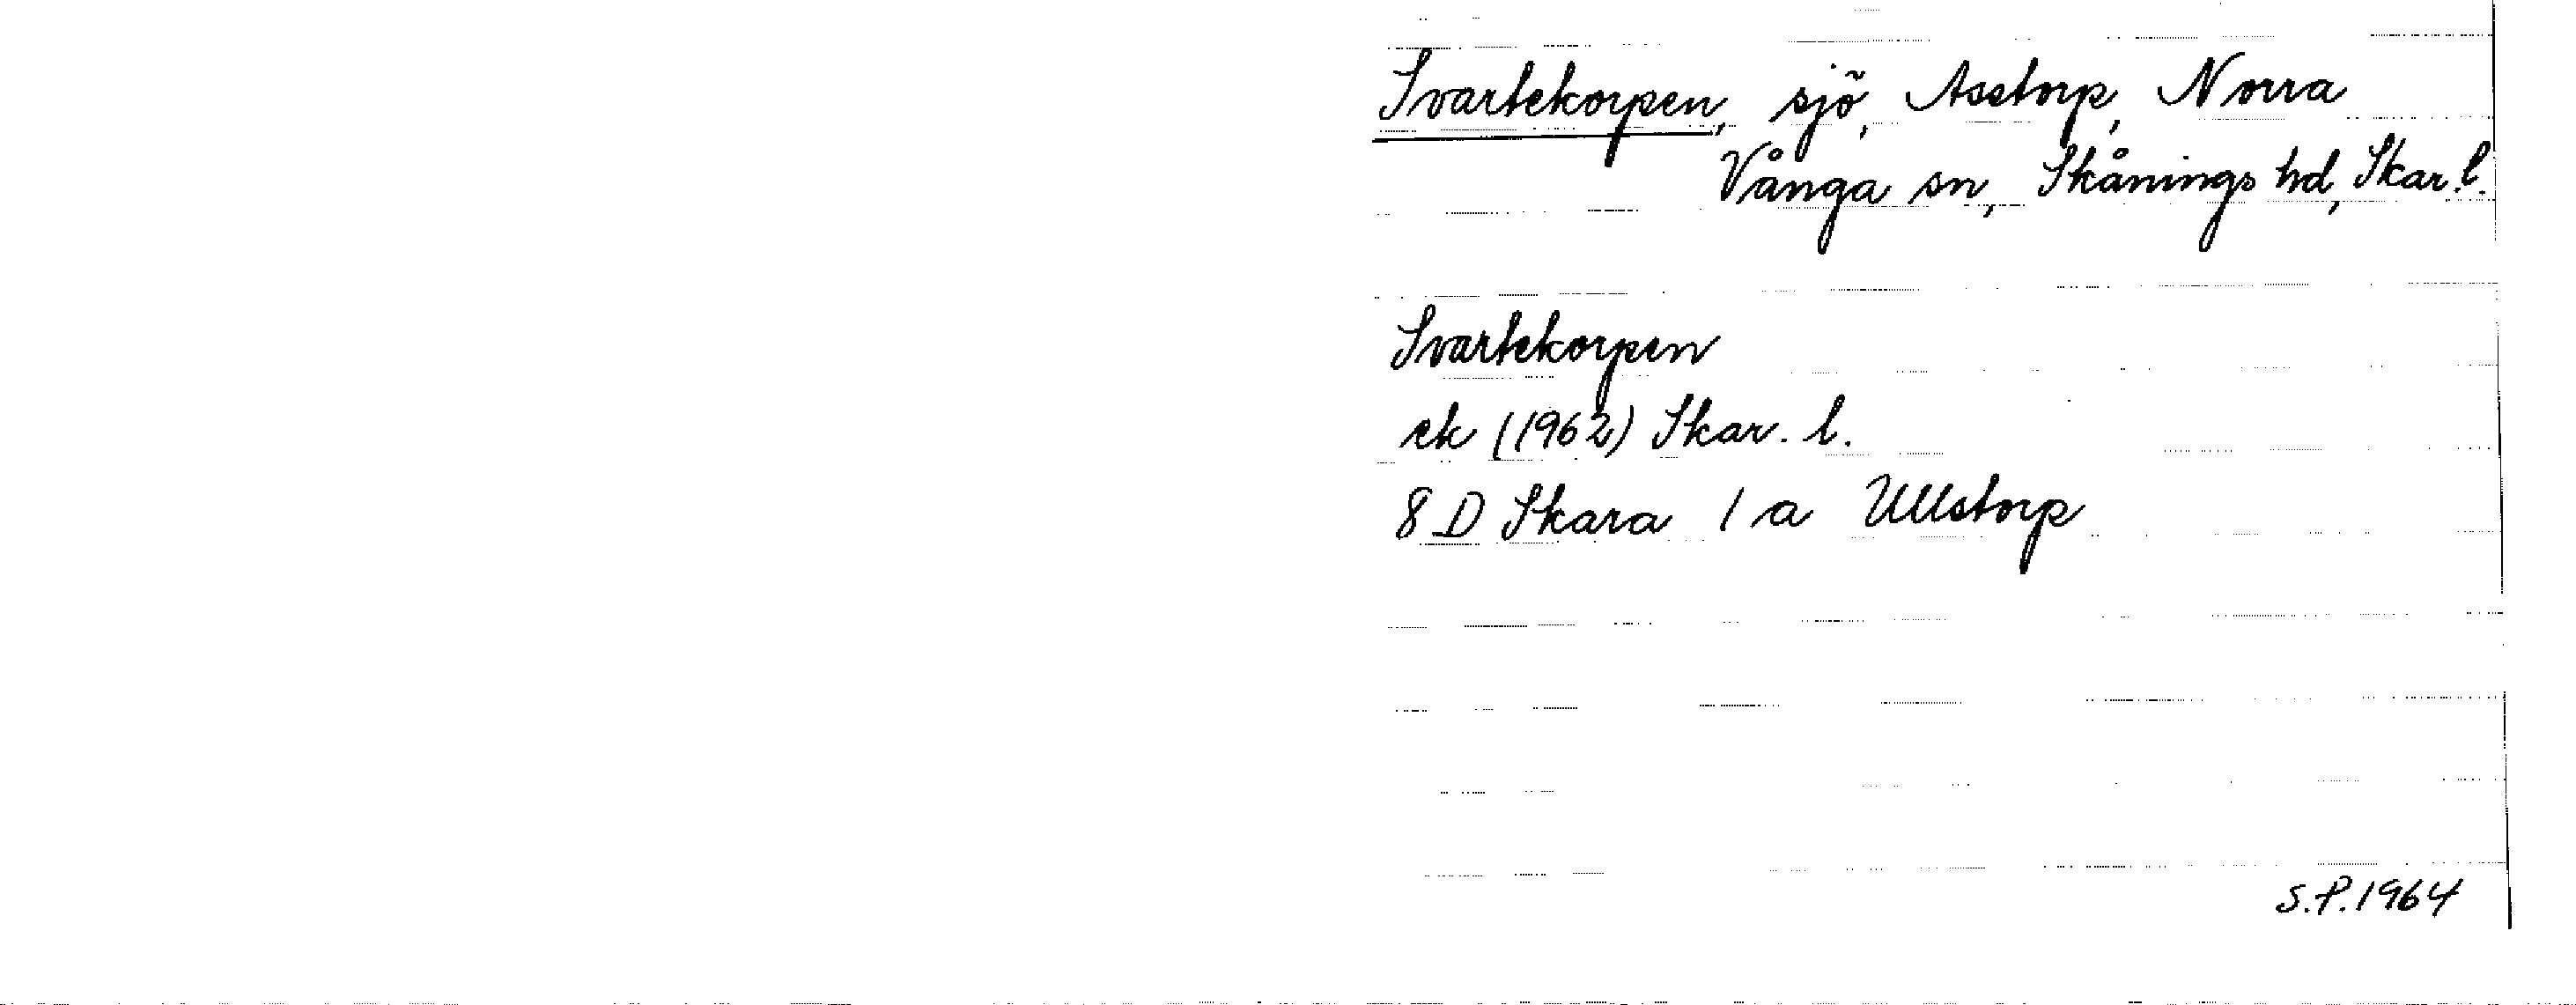 Svartekorpen, sjö, Asetorp, Norra
Vånga sn, Skånings hd, Skar. l.
Svartekorpen
ek (1962) Skar. l.
8 D Skara 1 a Ullstorp
S.P. 1964